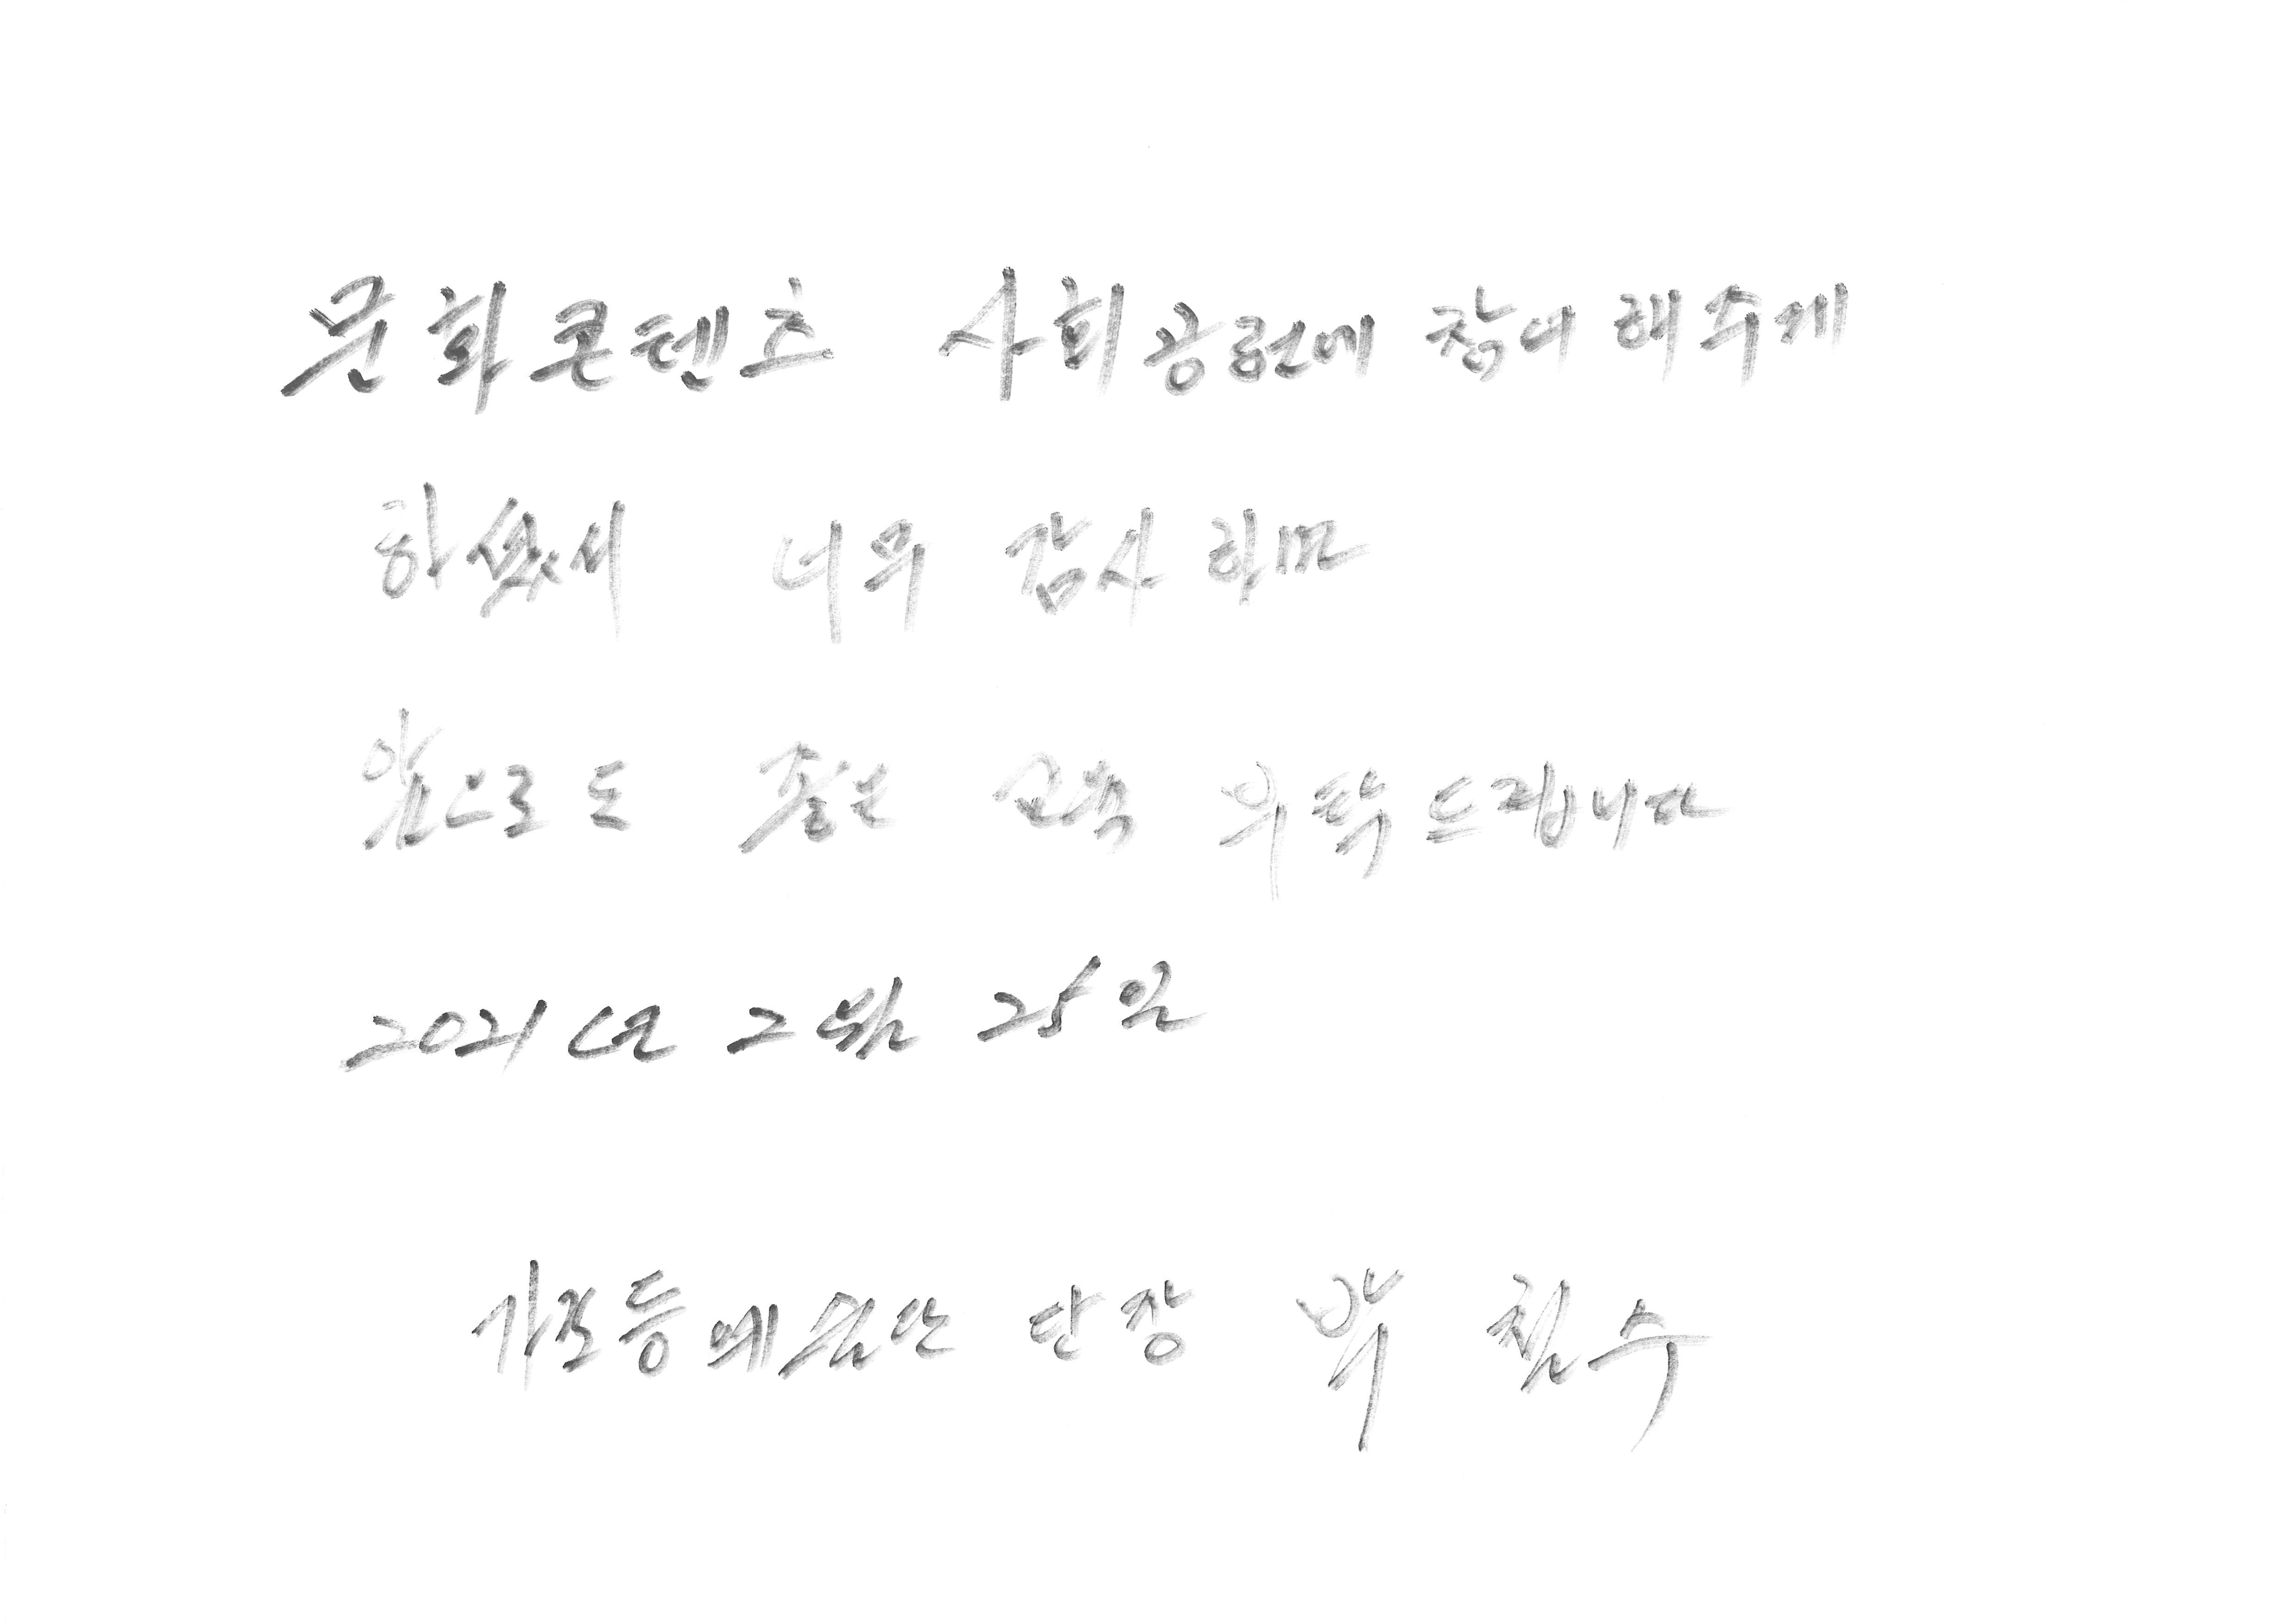 문화콘텐츠 사회공헌에 참여 해주게
하셨서 너무 감사 하며
앞으로도 좋은 교육 부탁드립니다
2021년 2월 25일
가조등예술단 단장 박 철수